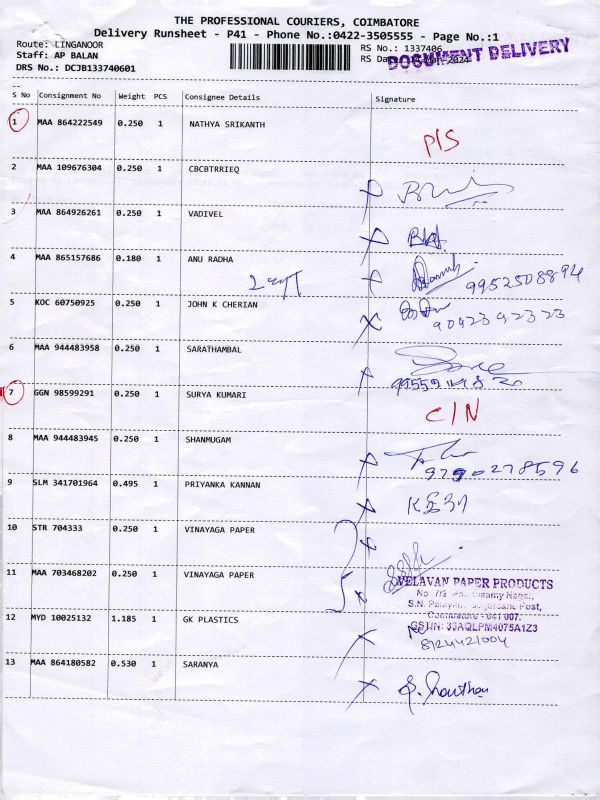 THE PROFESSIONAL COURIERS, COIMBATORE
Delivery Runsheet - P41 - Phone No.:0422-3505555 - Page No.:1
Route: LINGANOOR
Staff: AP BALAN
DRS No.: DCJB133740601
RS No.: 1337406
RS Date: 2024
DOCUMENT DELIVERY
S No Consignment No Weight PCS Consignee Details Signature
1 MAA 864222549 0.250 1 NATHYA SRIKANTH P/S
2 MAA 109676304 0.250 1 CBCBTRRIEQ
3 MAA 864926261 0.250 1 VADIVEL
4 MAA 865157686 0.180 1 ANU RADHA 9952508894
5 KOC 60750925 0.250 1 JOHN K CHERIAN 9042392323
6 MAA 944483958 0.250 1 SARATHAMBAL
7 GGN 98599291 0.250 1 SURYA KUMARI C/N
8 MAA 944483945 0.250 1 SHANMUGAM 9790278596
9 SLM 341701964 0.495 1 PRIYANKA KANNAN
10 STR 704333 0.250 1 VINAYAGA PAPER
11 MAA 703468202 0.250 1 VINAYAGA PAPER
VELAVAN PAPER PRODUCTS
12 MYD 10025132 1.185 1 GK PLASTICS
GSTIN: 33AQLPM4075A1Z3
8124421004
13 MAA 864180582 0.530 1 SARANYA